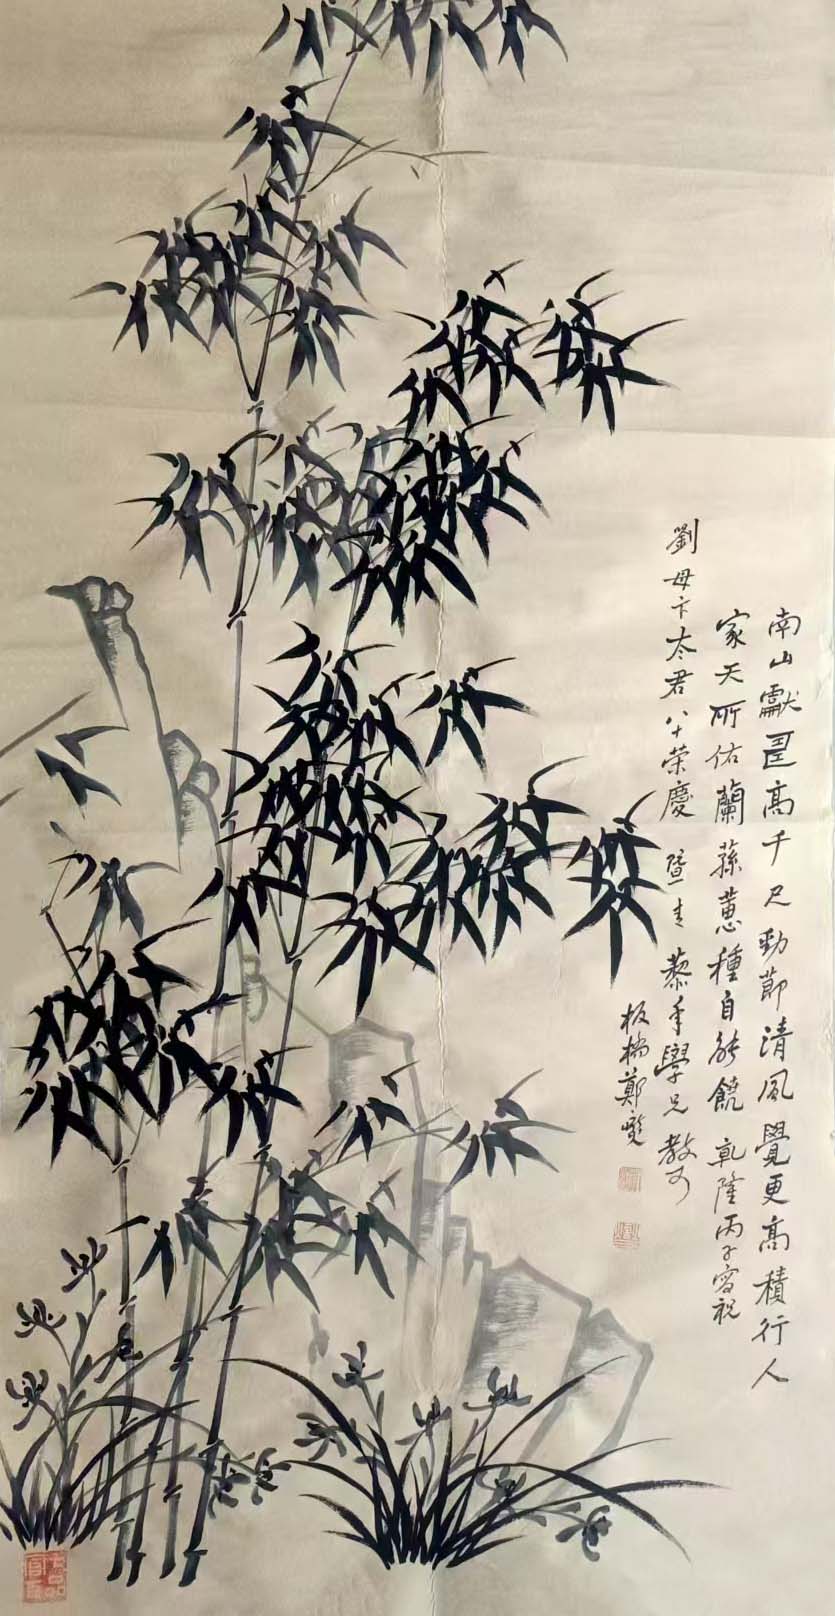 南山獻壽高千尺勁節清風覺更高積行人
家天所佑蘭蓀蕙種自能饒 乾隆丙子寫祝
劉母卞太君八十荣慶 暨青藜年學兄教可
板橋鄭燮